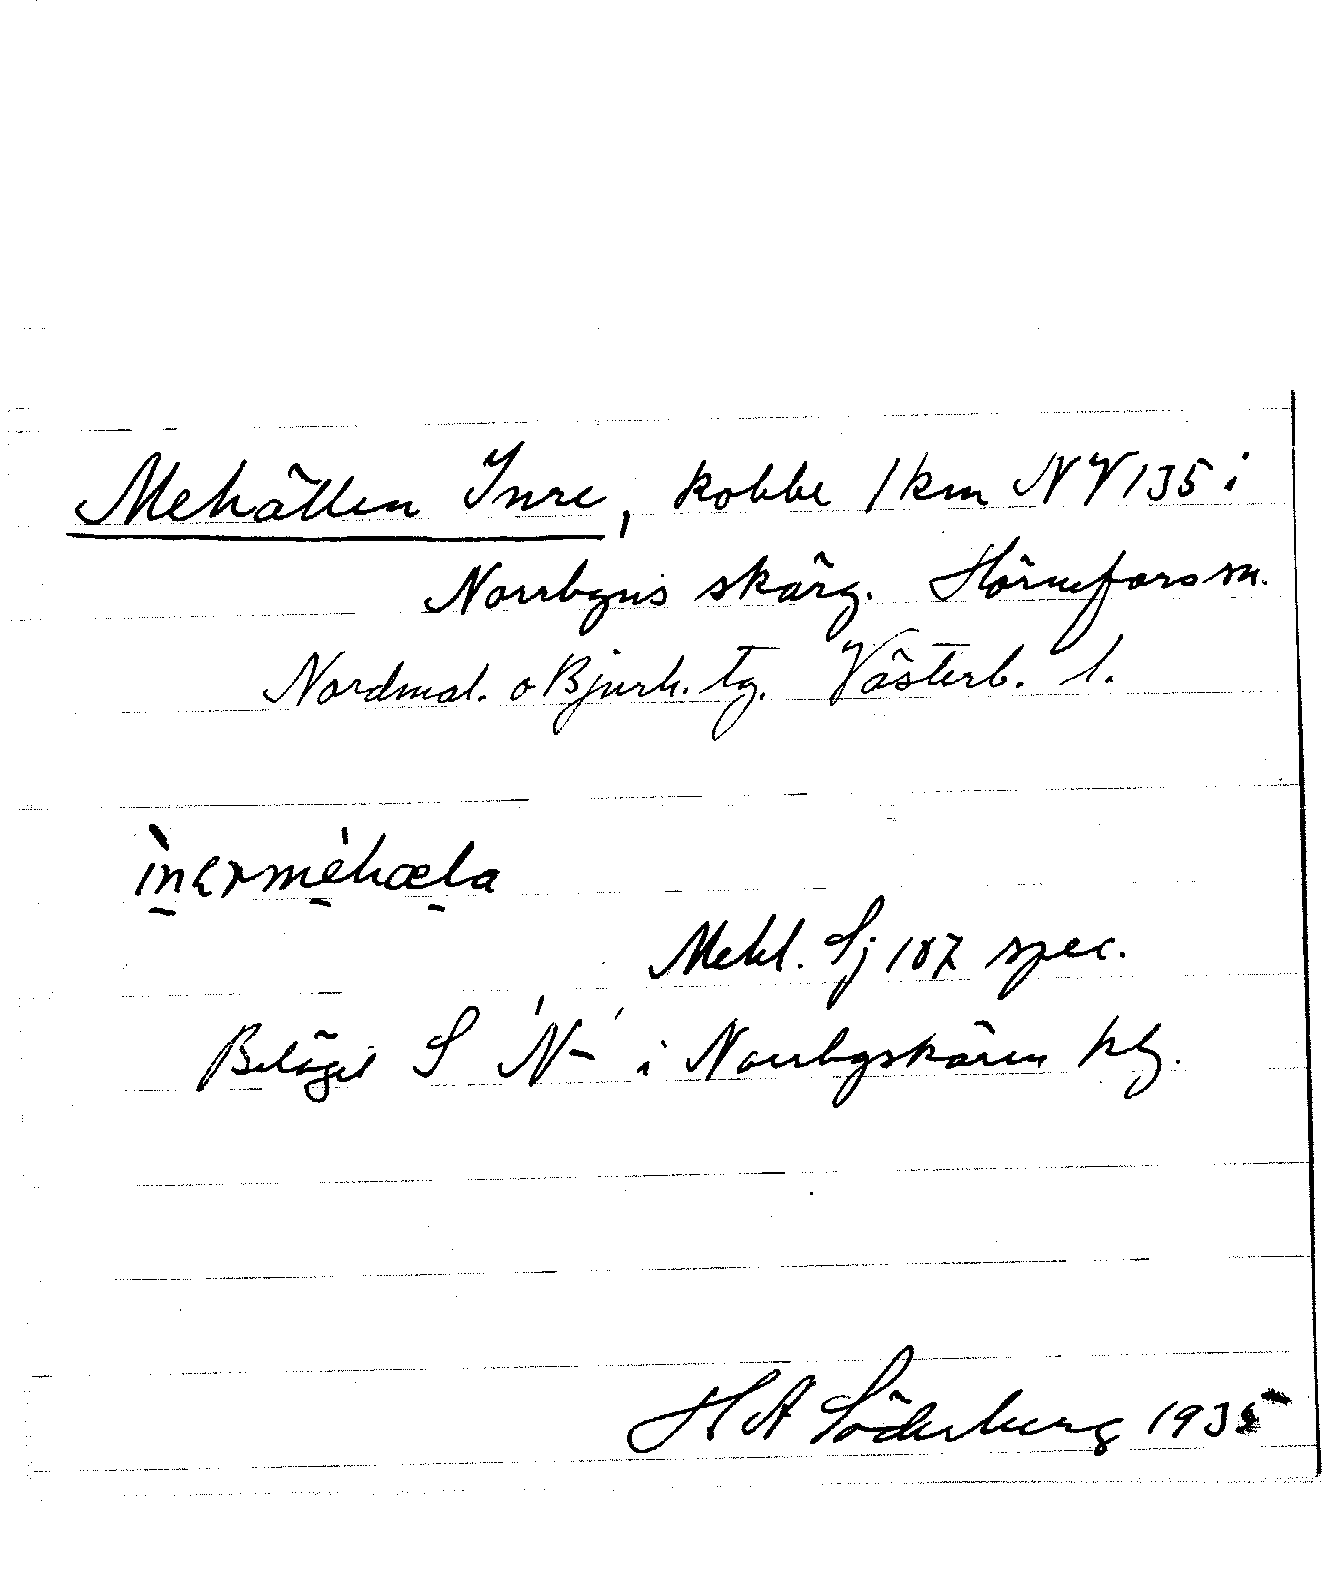 Mehällen Inre, kobbe 1 km NV 135 i
Norrbyns skärg. Hörnefors sn.
Nordmal. o Bjurh. tg. Västerb. l.
ìnɛrméhæla
Mehl. Sj 107 spec.
Beläget S 'N-' i Norrbyskären
H A Söderberg 1935